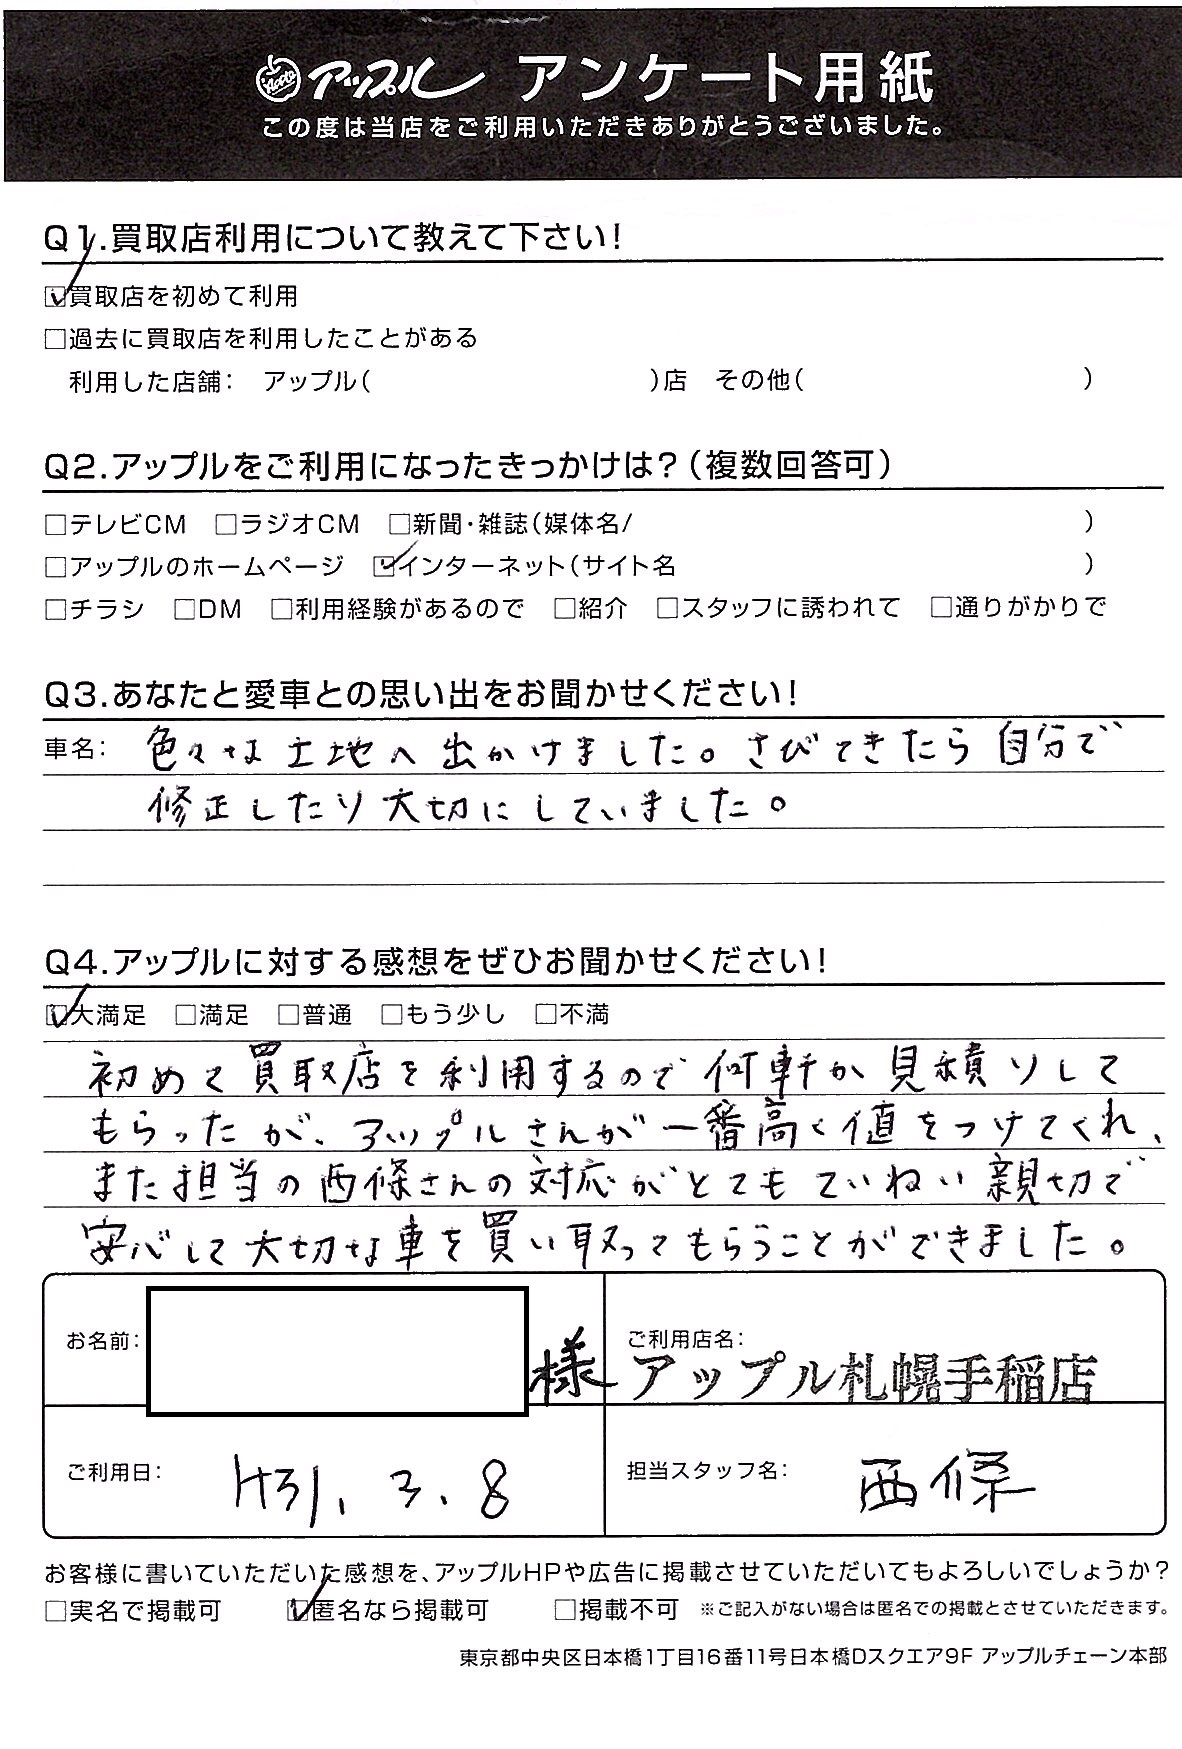 Apple アップル アンケート用紙
この度は当店をご利用いただきありがとうございました。
Q1.買取店利用について教えて下さい!
☑買取店を初めて利用
□過去に買取店を利用したことがある
利用した店舗: アップル( )店 その他( )
Q2.アップルをご利用になったきっかけは?(複数回答可)
□テレビCM □ラジオCM □新聞・雑誌(媒体名/ )
□アップルのホームページ ☑インターネット(サイト名 )
□チラシ □DM □利用経験があるので □紹介 □スタッフに誘われて □通りがかりで
Q3.あなたと愛車との思い出をお聞かせください!
車名: 色々な土地へ出かけました。さびてきたら自分で
修正したり大切にしていました。
Q4.アップルに対する感想をぜひお聞かせください!
☑大満足 □満足 □普通 □もう少し □不満
初めて買取店を利用するので何軒か見積りして
もらったが、アップルさんが一番高く値をつけてくれ、
また担当の西條さんの対応がとてもていねい親切で
安心して大切な車を買い取ってもらうことができました。
お名前: 様
ご利用店名: アップル札幌手稲店
ご利用日: H31.3.8
担当スタッフ名: 西條
お客様に書いていただいた感想を、アップルHPや広告に掲載させていただいてもよろしいでしょうか?
□実名で掲載可 ☑匿名なら掲載可 □掲載不可 ※ご記入がない場合は匿名での掲載とさせていただきます。
東京都中央区日本橋1丁目16番11号日本橋Dスクエア9F アップルチェーン本部